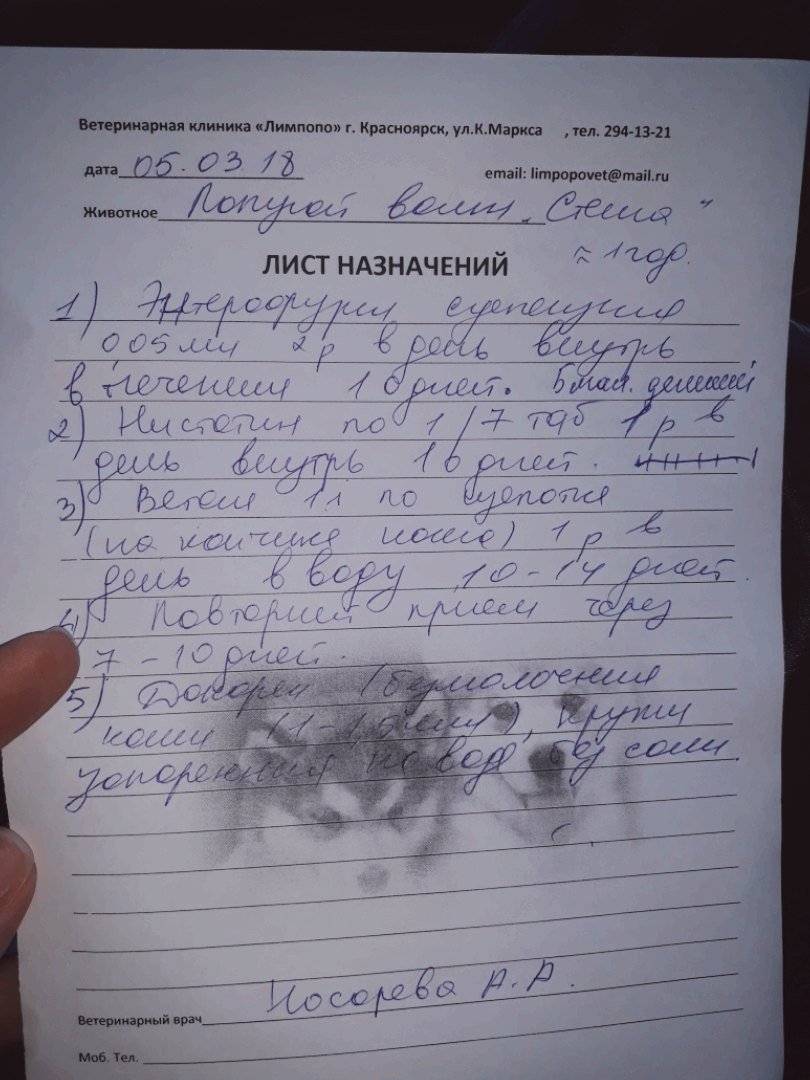 Ветеринарная клиника «Лимпопо» г. Красноярск, ул.К.Маркса , тел. 294-13-21
дата 05.03.18 email: limpopovet@mail.ru
Животное Попугай волн „Стеша"
≈ 1 год.
ЛИСТ НАЗНАЧЕНИЙ
1) Энтерофурил суспензия
0,05 мл 2 р в день внутрь
в течении 10 дней.
2) Нистатин по 1/7 таб 1 р в
день внутрь 10 дней.
3) Ветом 1.1 по
(на кончике ножа) 1 р в
день в воду 10-14 дней.
4) Повторный прием через
7-10 дней.
5) Докорм (безмолочная
каша (1-1,5 ), крупы
запаренные на воде без соли.
Ветеринарный врач Носарева А.А.
Моб. Тел.